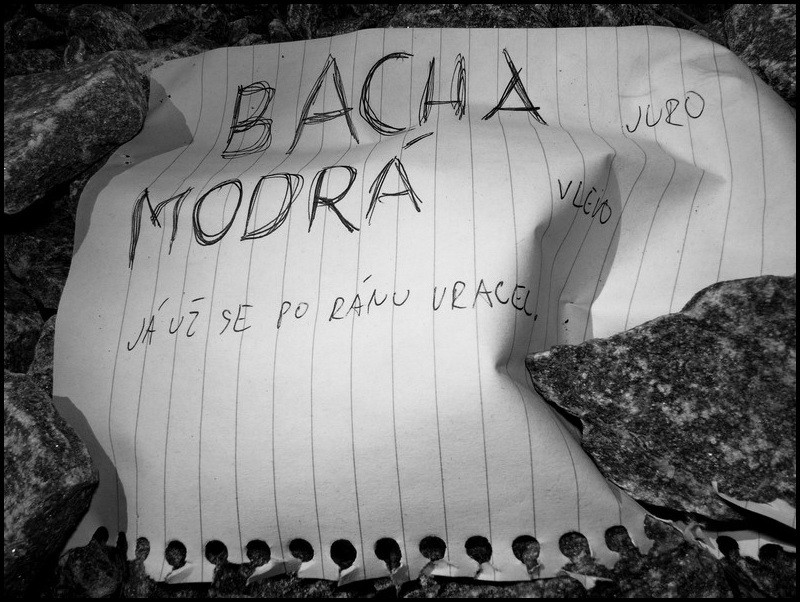 BACHA
JURO
MODRÁ
VLEVO
JÁ UŽ SE PO RÁNU VRACEL.